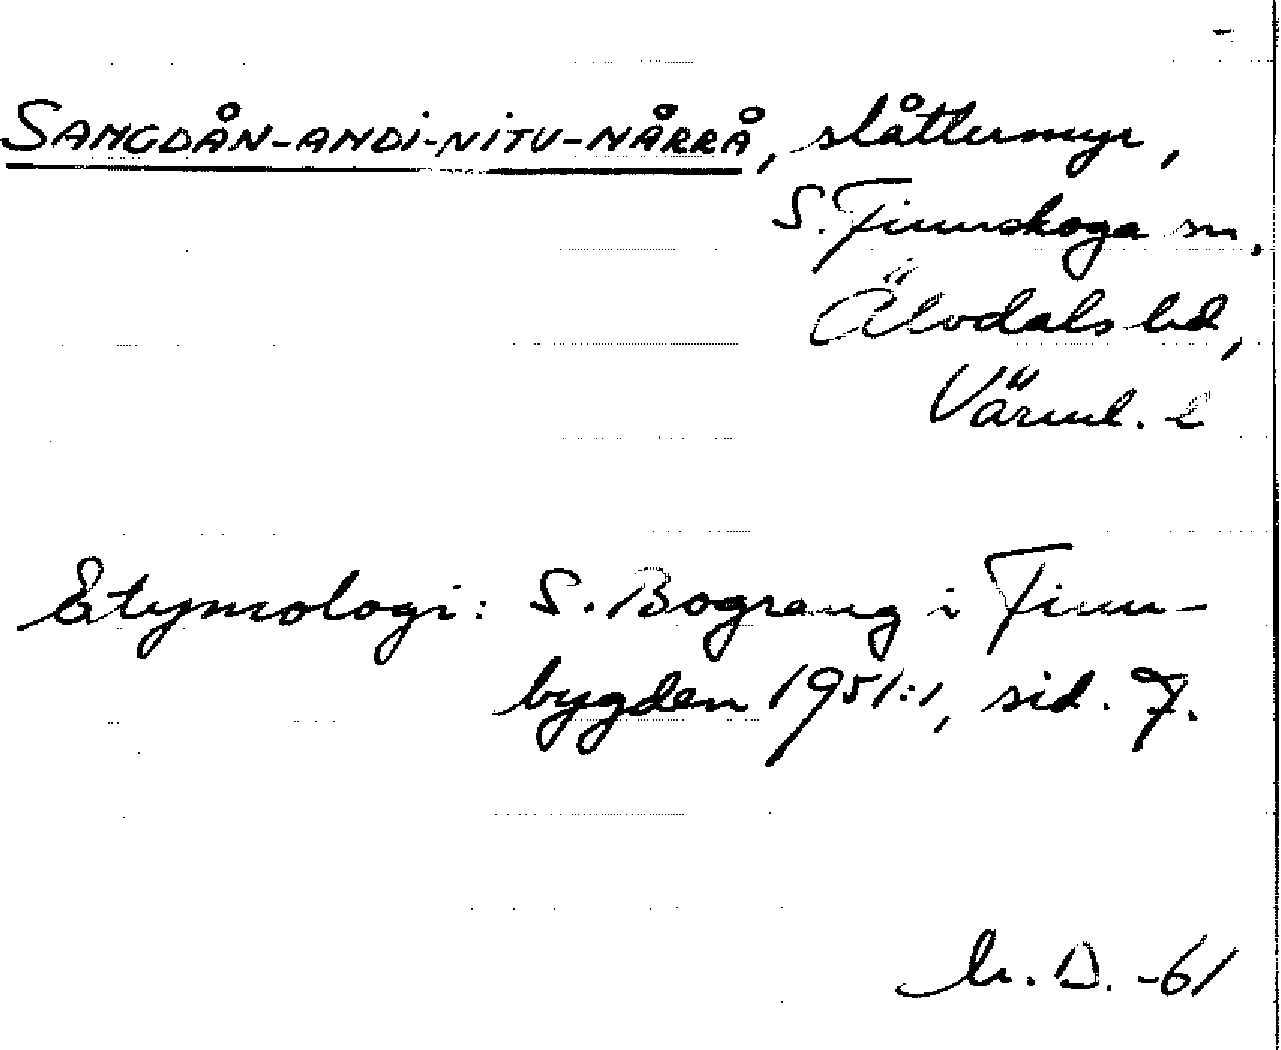 SAMGDÅN-ANDI-NITU-NÅRRÅ, slåttermyr,
S. Finnskoga sn,
Älvdals hd,
Värml. l
Etymologi: S. Bograng i Finn-
bygden 1951:1, sid. 7.
D. -61